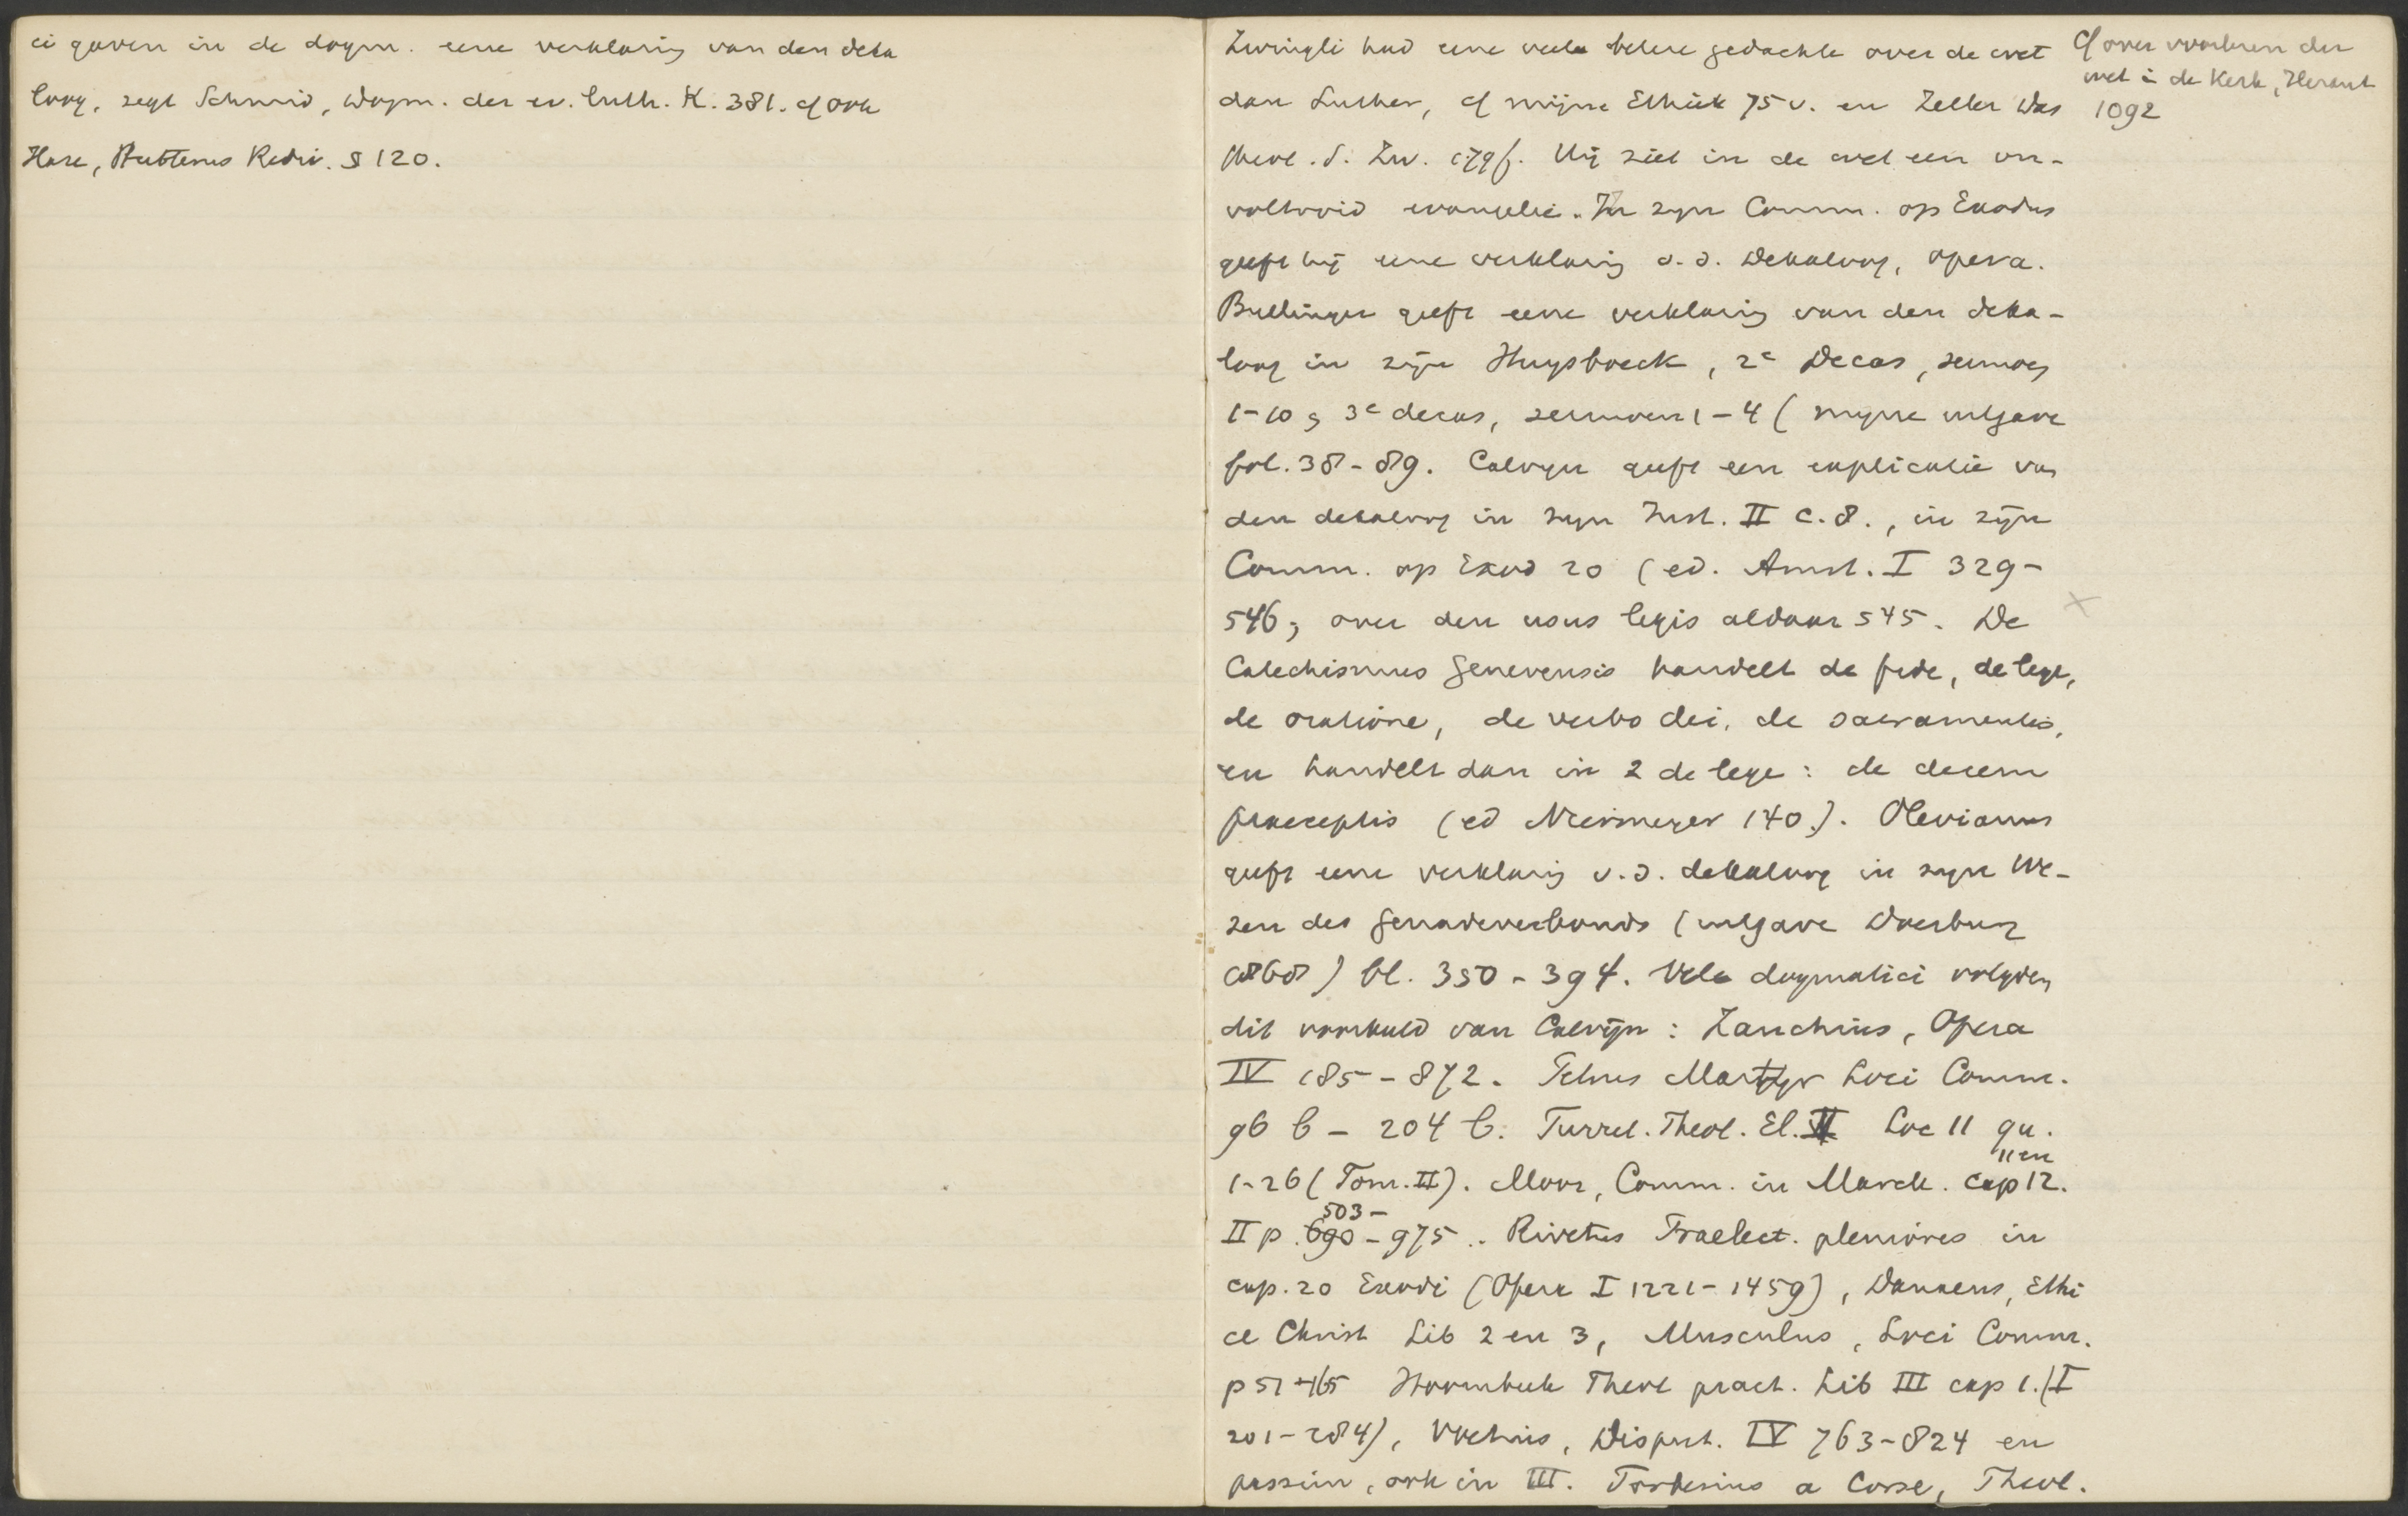 ci gaven in de dogm. eene verklaring van den deka
loog, zegt Schmid, Dogm. der ev. luth. K. 381. cf ook
Hase, Hutterus Rediv. § 120.
Zwingli had eene veel betere gedachte over de wet
dan Luther, cf mijne Ethiek 75 v. en Zeller Das
theol. S. Zw. 179 f. Hij ziet in de wet een on-
voltooid evangelie. In zijn Comm. op Exodus
geeft hij eene verklaring v.d. Dekaloog, opera.
Bullinger geeft eene verklaring van den deka-
loog in zijn Huysboeck, 2e Decas, sermoen
1-10; 3e decas, sermoen 1-4 (mijne uitgave
fol. 38-89. Calvijn geeft een explicatie van
den dekaloog in zijn Inst. II c. 8., in zijn
Comm. op Exod 20 (ed. Amst. I 329-
546; over den usus legis aldaar 545. De
Catechismus Genevensis handelt de fide, de lege,
de oratione, de verbo dei, de sacramentis,
en handelt dan in 2 de lege: de decem
praeceptis (ed Niemeyer 140). Olevianus
geeft eene verklaring v.d. dekaloog in zijn We-
zen des Genadeverbonds (uitgave Doesburg
1868) bl. 350-394. Vele dogmatici volgden
dit voorbeeld van Calvijn: Zanchius, Opera
IV 185-872. Petrus Martyr Loci Comm.
96 b - 204 b. Turret. Theol. El. II Loc 11 qu.
1-26 (Tom. II). Moor, Comm. in Marck. cap 11 en 12.
II p. 503- 690-975.. Rivetus Praelect. pleniores in
cap. 20 Exodi (Opera I 1221-1459), Danaeus, Ethi
ce Christ Lib 2 en 3, Musculus, Loci Comm.
p 51 Hoornbeek Theol pract. Lib III cap 1. (I
201-284), Voetius, Disput. IV 763-824 en
passim, ook in III. Forbesius a Corse, Theol.
Cf over voorlezen der
wet in de Kerk, Heraut
1092